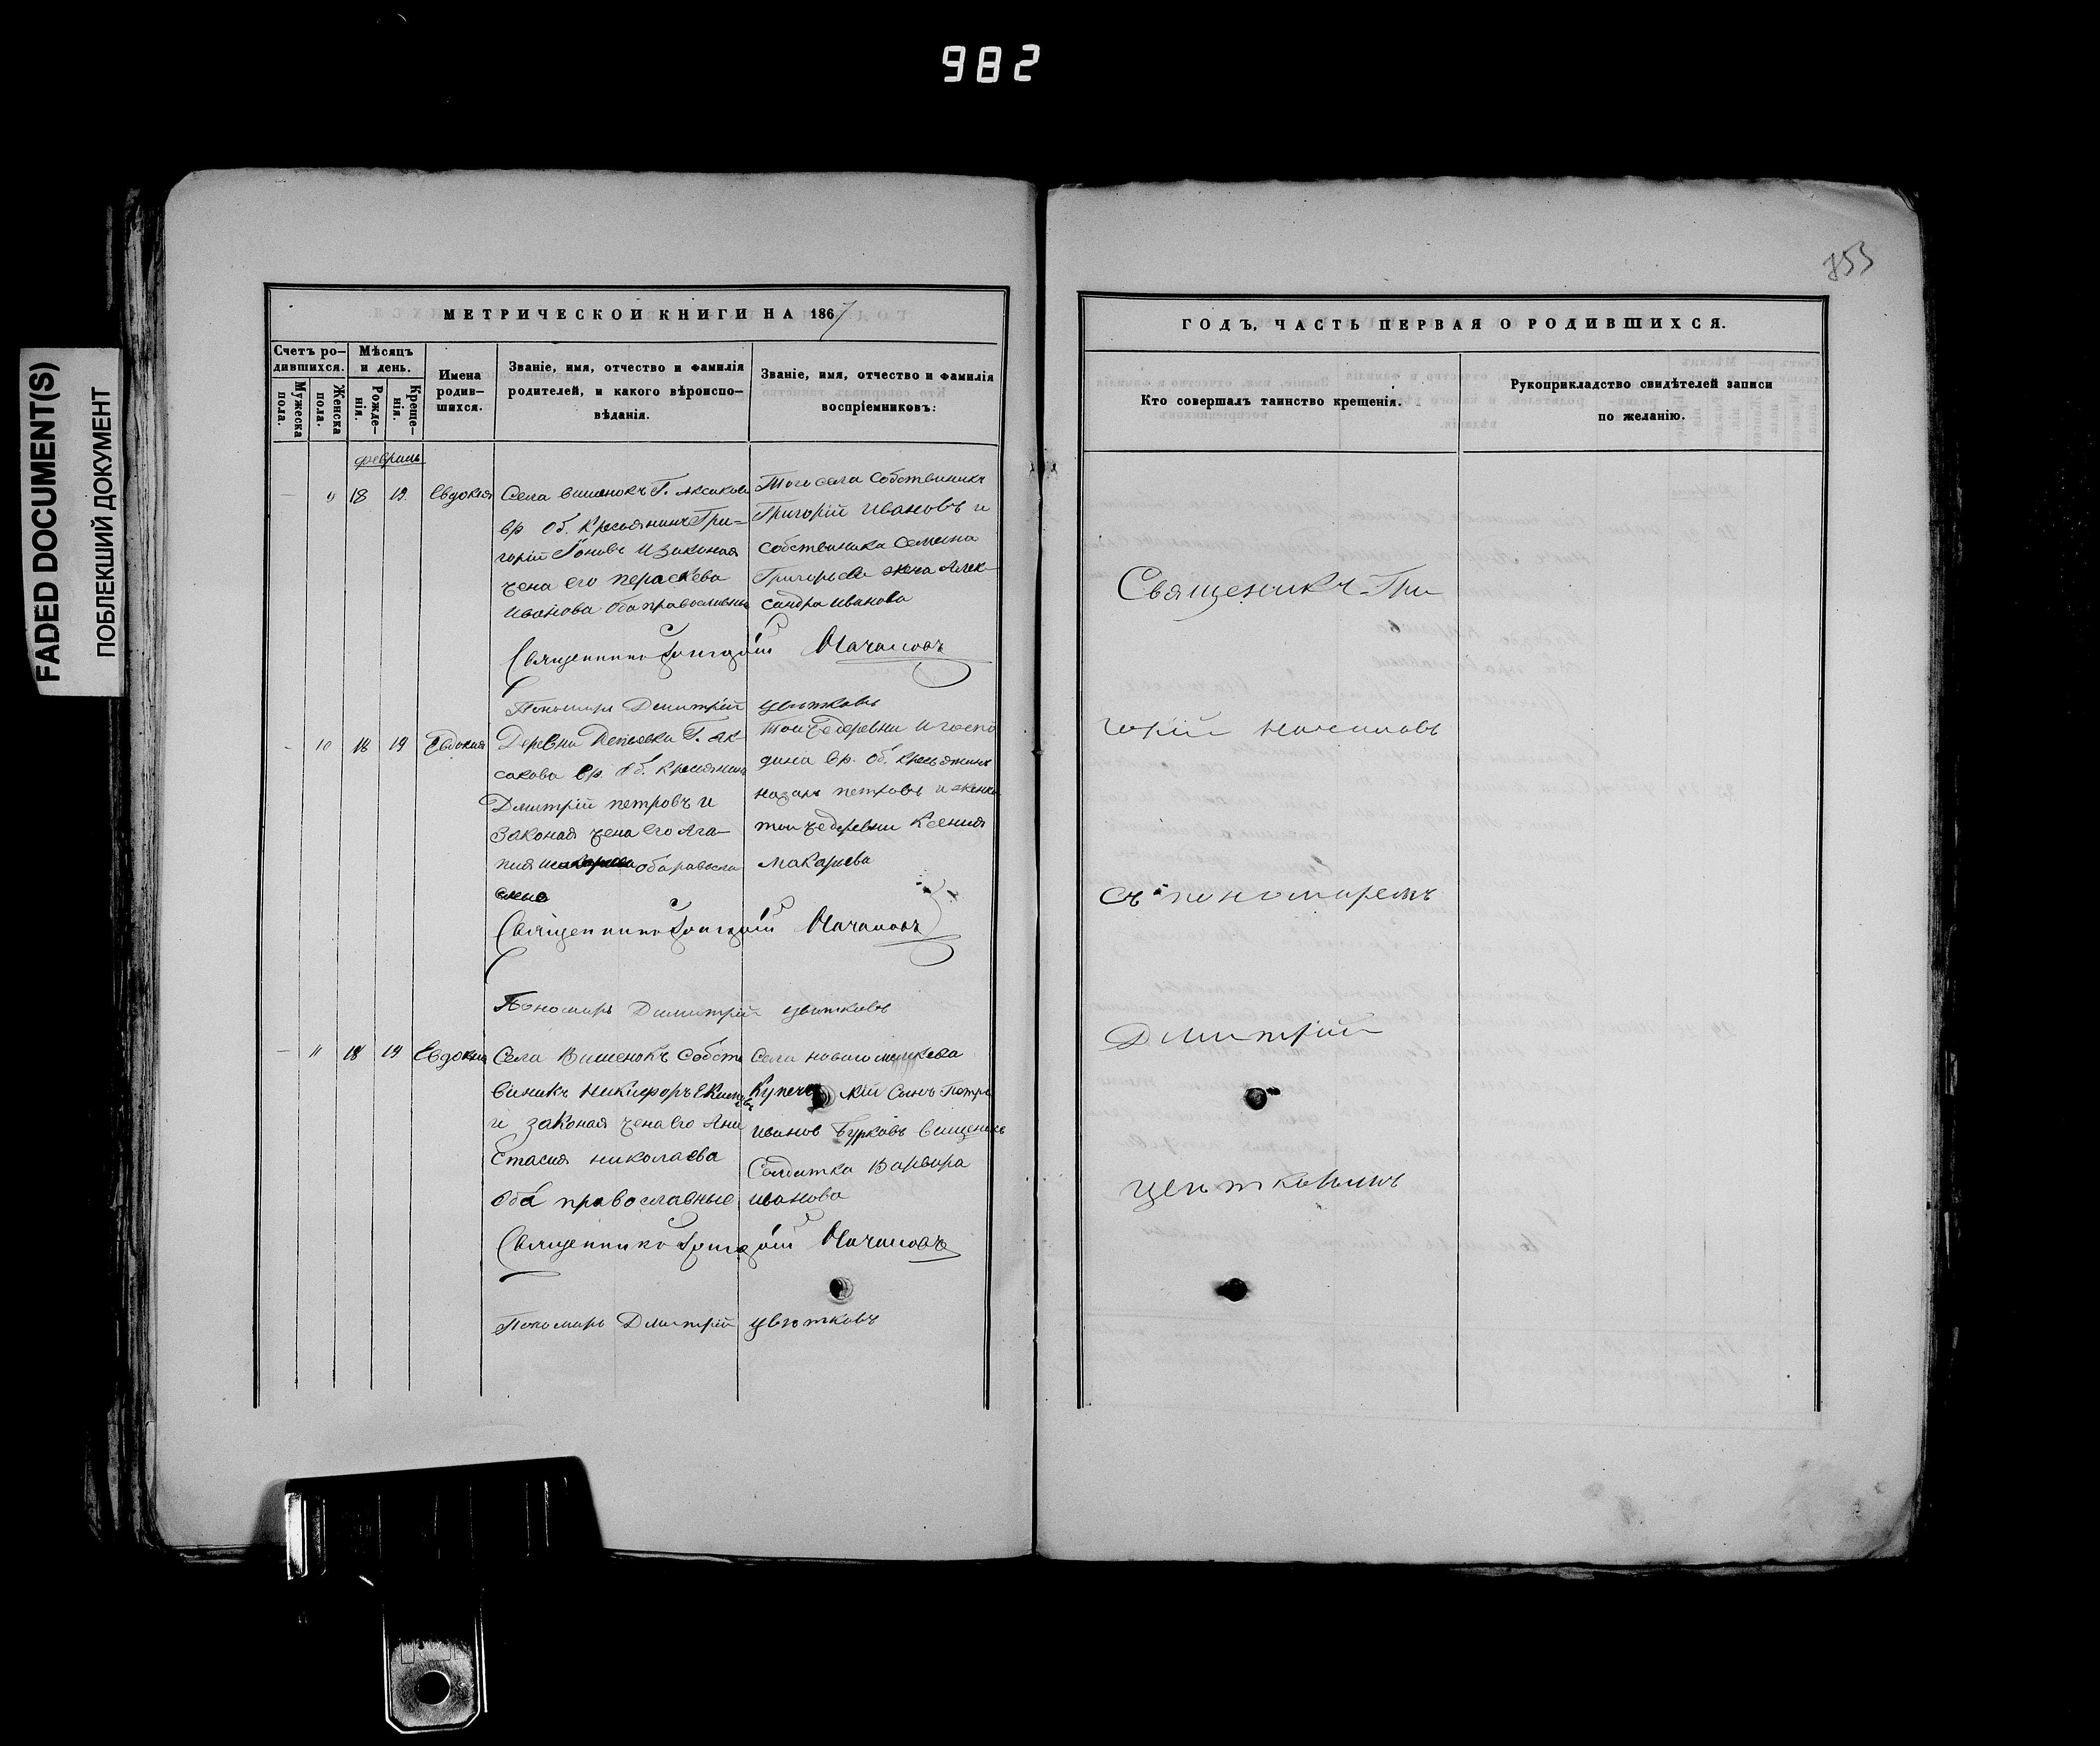 982
FADED DOCUMENT(S)
ПОБЛЕКШИЙ ДОКУМЕНТ
МЕТРИЧЕСКОЙ КНИГИ НА 1867
Счетъ ро-
дившихся.
Мужеска
пола.
Женска
пола.
Мѣсяцъ
и день.
Рожде-
нія.
Креще-
нія.
Имена
родив-
шихся.
Званіе, имя, отчество и фамилія
родителей, и какого вѣроиспо-
вѣданія.
Званіе, имя, отчество и фамилія
воспріемниковъ:
февраль
9 18 19. Евдокия
Села вишенокъ Г. Аксакова
вр об. Крестьянинъ Гри-
горій Іоновъ и законая
жена его пераскева
иванова оба православны
Того села собственикъ
Григорій ивановъ и
собственика Семена
Григорьева жена Алек-
сандра иванова
Священникъ Григорій Мачаловъ
Пономарь Димитрій цвѣтковъ
10 18 19 Евдокия
Деревни Г. Ак
сакова вр. об. крестьянинъ
Дмитрій петровъ и
законая жена его Ага-
пия оба
Той же деревни и госпо
дина вр. об. крестьянинъ
назаръ петровъ и
той же деревни Ксения
макарьева
Священникъ Григорій Мачаловъ
Пономарь Димитрій цвѣтковъ
11 18 19 Евдокия
Села Вишенокъ собст
виникъ Никифоръ
и законая жена его Ана
стасия николаева
оба православные
Села новаго
Сынъ Петръ
иванов Бурковъ
Солдатка Варвара
иванова
Священникъ Григорій Мачаловъ
Пономарь Димитрій цвѣтковъ
353
ГОДЪ, ЧАСТЬ ПЕРВАЯ О РОДИВШИХСЯ.
Кто совершалъ таинство крещенія.
Рукоприкладство свидѣтелей записи
по желанію.
Священикъ Гри
горій Мачаловъ
съ пономаремъ
Димитрій
цвѣтковымъ